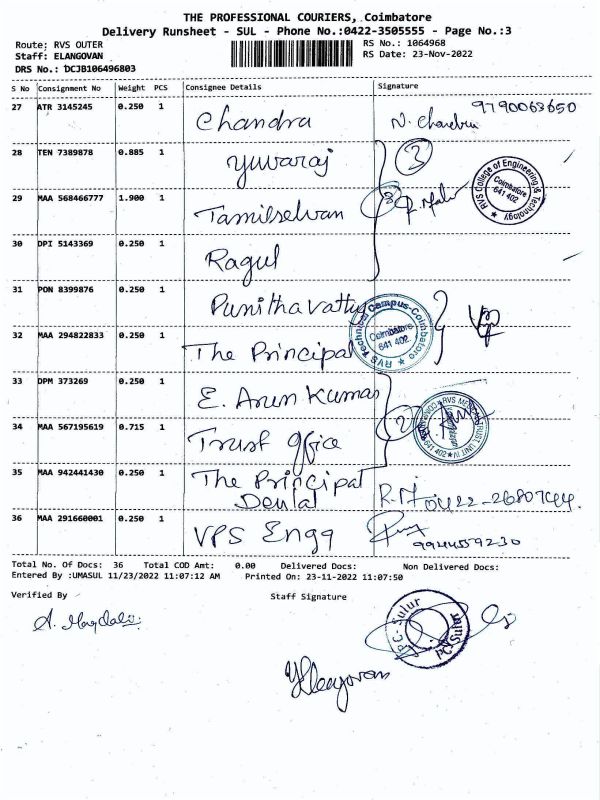 THE PROFESSIONAL COURIERS, Coimbatore
Delivery Runsheet - SUL - Phone No.:0422-3505555 - Page No.:3
Route: RVS OUTER
Staff: ELANGOVAN
DRS No.: DCJB106496803
RS No.: 1064968
RS Date: 23-Nov-2022
S No Consignment No Weight PCS Consignee Details Signature
27 ATR 3145245 0.250 1 Chandra N. Chandra 9790063650
28 TEN 7389878 0.885 1 Yuvaraj 3
RVS College of Engineering & Technology Coimbatore 641 402
29 MAA 568466777 1.900 1 Tamilselvan
30 DPI 5143369 0.250 1 Ragul
31 PON 8399876 0.250 1 Punithavathy
RVS Technical Campus-Coimbatore Coimbatore 641 402
32 MAA 294822833 0.250 1 The Principal
33 DPM 373269 0.250 1 E. Arun Kumar
34 MAA 567195619 0.715 1 Trust office 2
35 MAA 942441430 0.250 1 The Principal
Dental
0422-2680744.
36 MAA 291660001 0.250 1 VPS Engg
9944559230
Total No. Of Docs: 36 Total COD Amt: 0.00 Delivered Docs: Non Delivered Docs:
Entered By :UMASUL 11/23/2022 11:07:12 AM Printed On: 23-11-2022 11:07:50
Verified By
Staff Signature
Elangovan